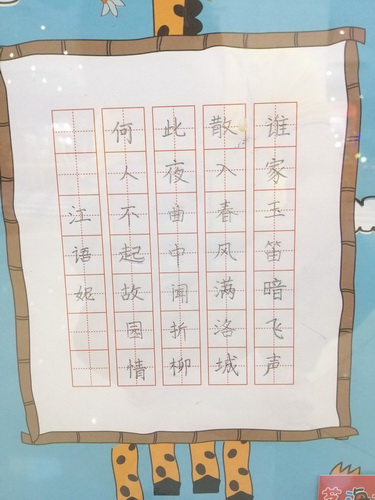 谁家玉笛暗飞声
散入春风满洛城
此夜曲中闻折柳
何人不起故园情
汪语妮